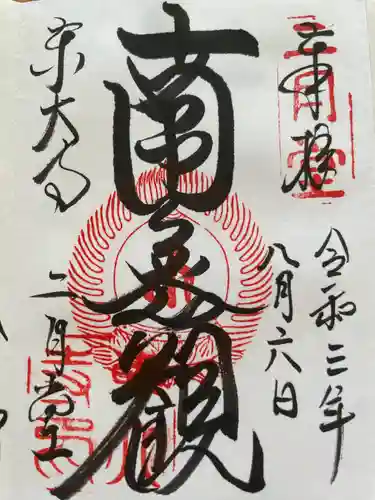 奉拝
二月堂
令和三年
八月六日
南無観
東大寺
二月堂